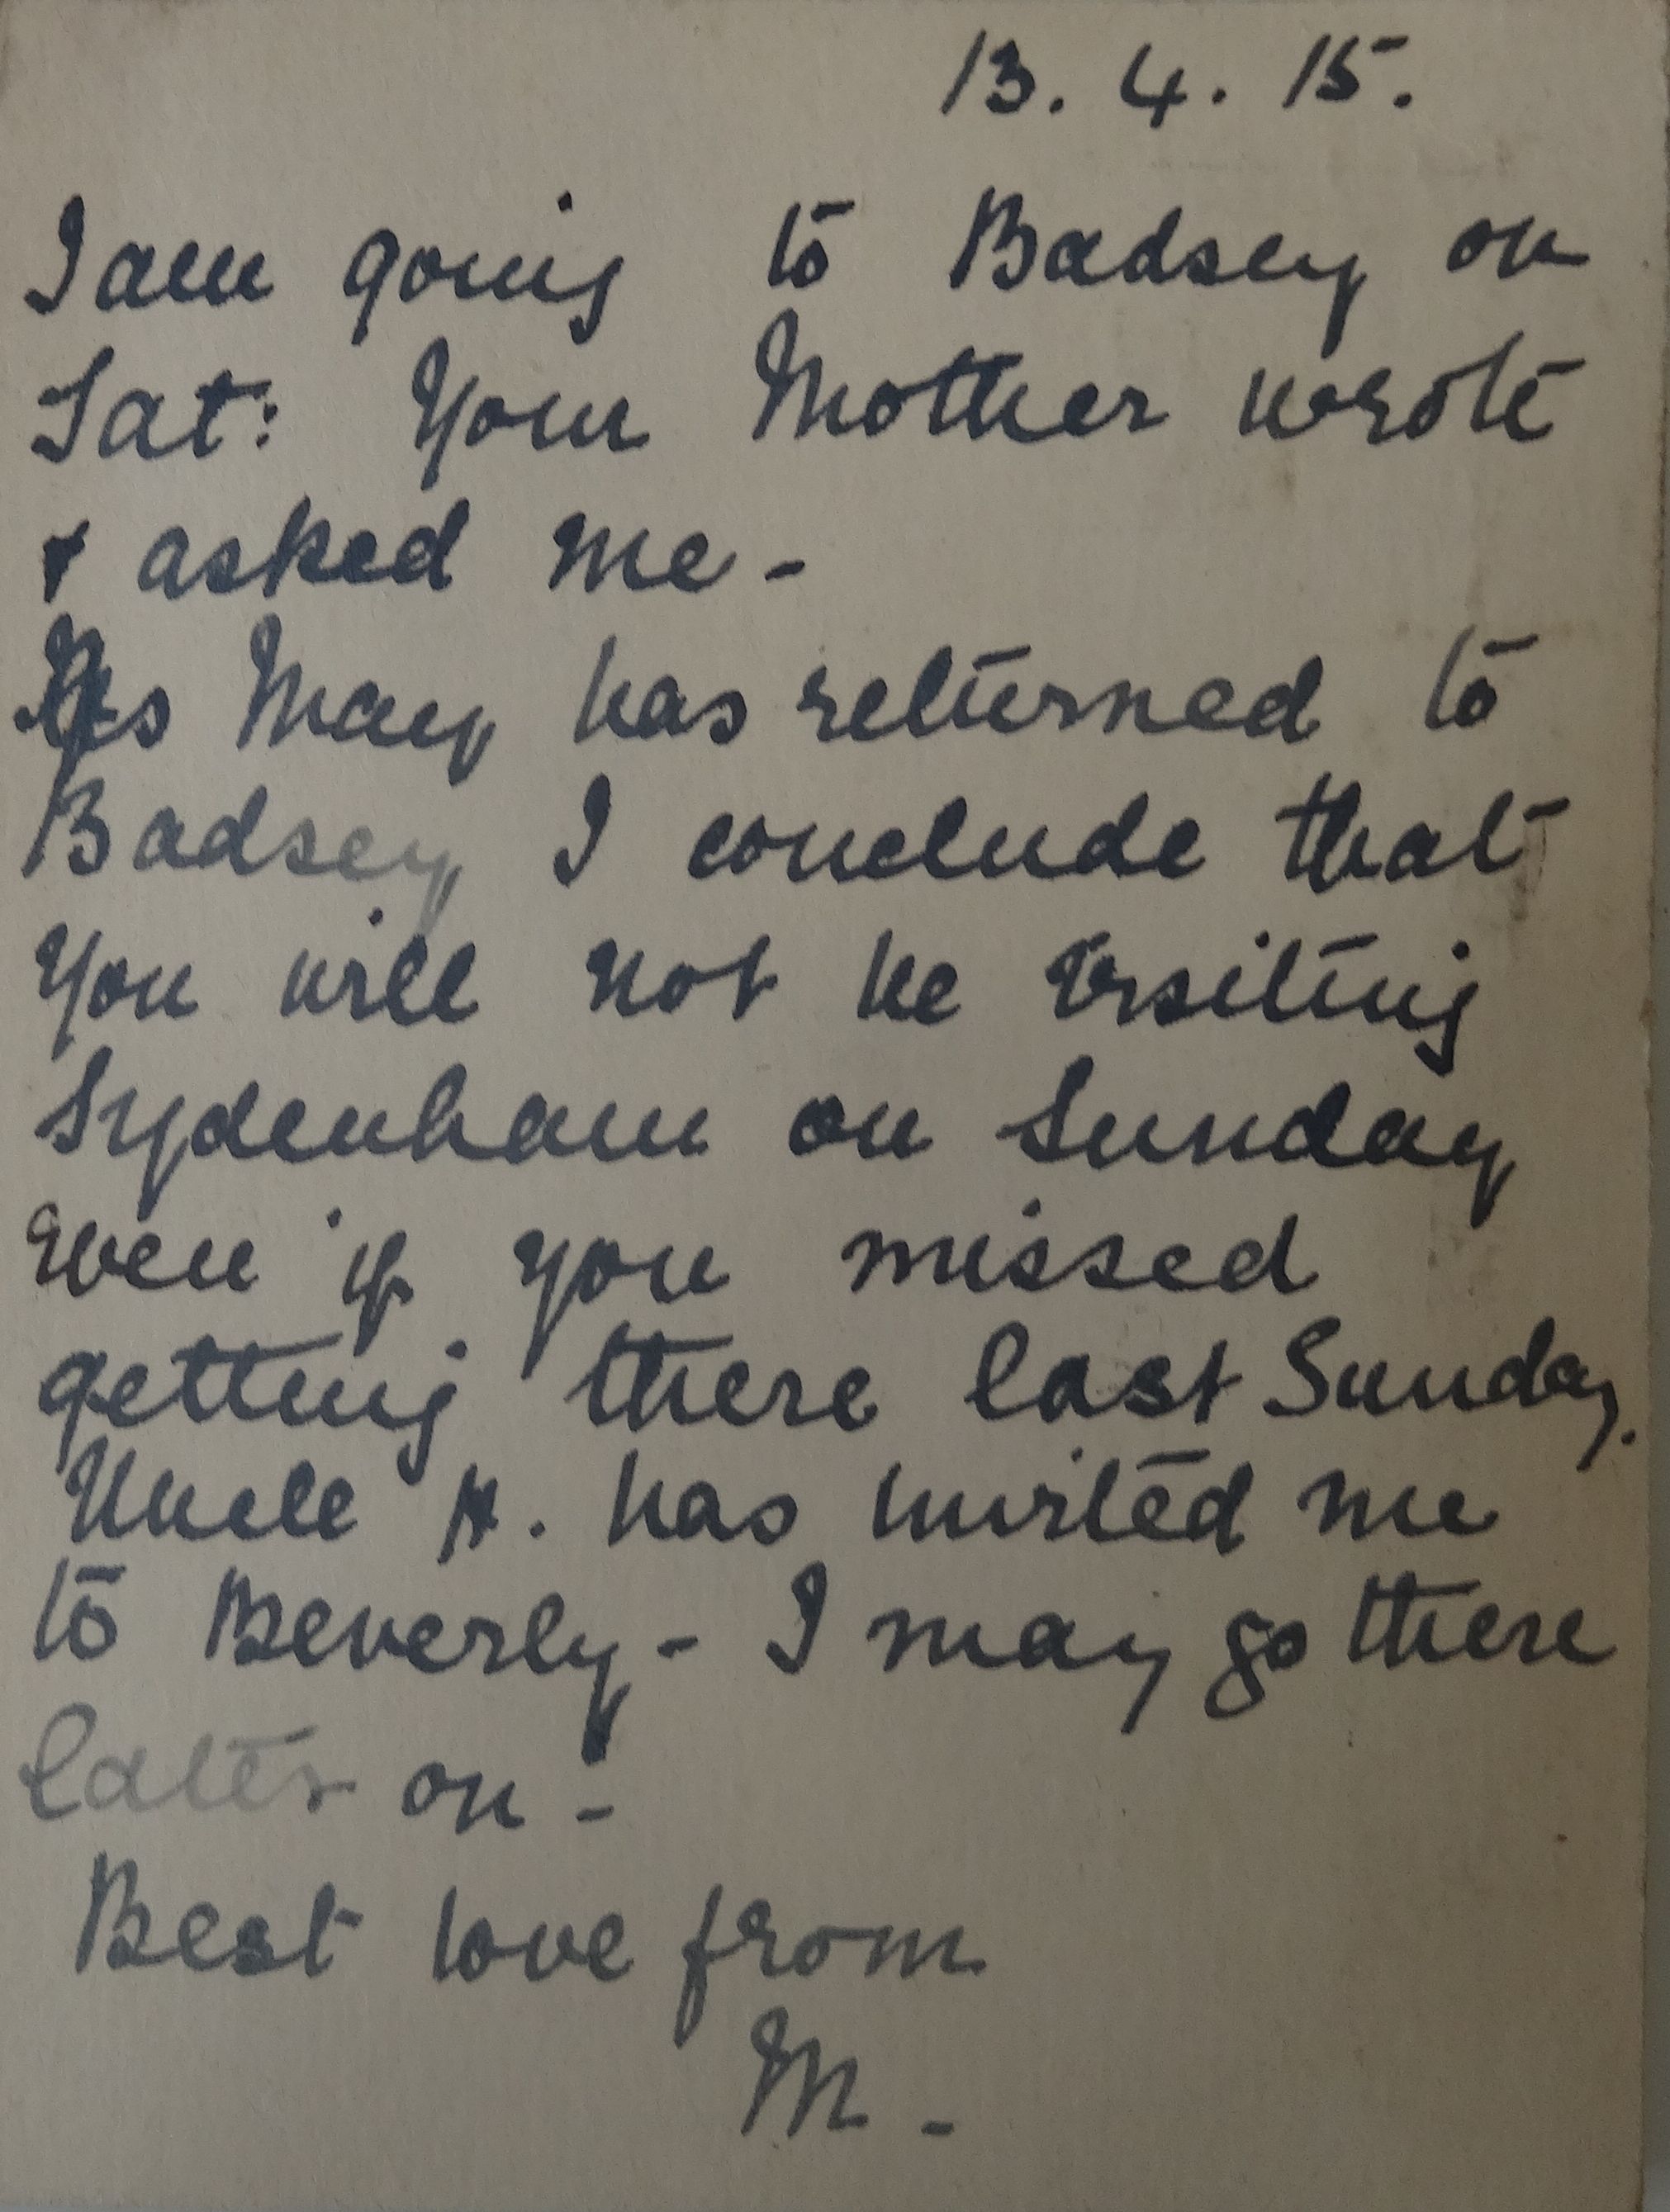 13. 4. 15.
I am going to Badsey on
Sat: Your Mother wrote
+ asked me -
As May has returned to
Badsey I conclude that
you will not be visiting
Sydenham on Sunday
even if you missed
getting there last Sunday.
Uncle H. has invited me
to Beverly - I may go there
later on -
Best love from
M -